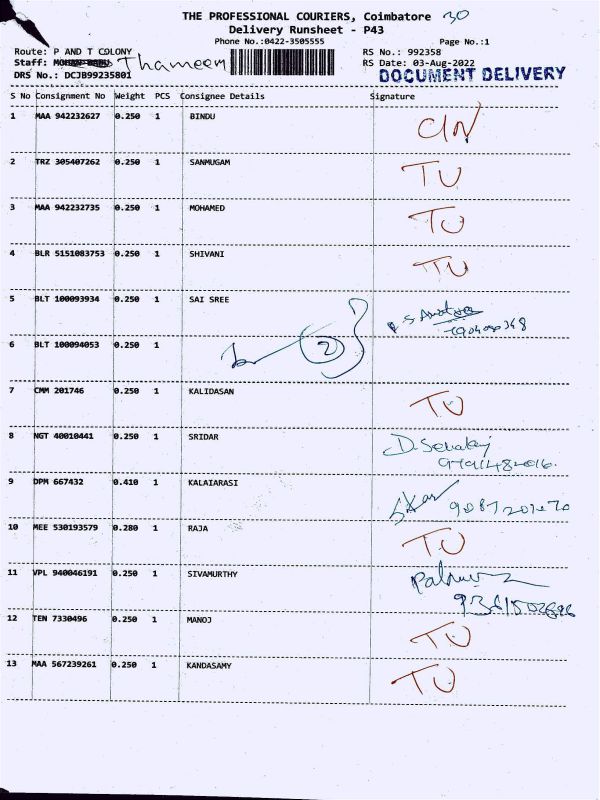 THE PROFESSIONAL COURIERS, Coimbatore 30
Delivery Runsheet - P43
Phone No.:0422-3505555 Page No.:1
Route: P AND T COLONY RS No.: 992358
Staff: Thameem RS Date: 03-Aug-2022
DRS No.: DCJB99235801 DOCUMENT DELIVERY
S No Consignment No Weight PCS Consignee Details Signature
1 MAA 942232627 0.250 1 BINDU
2 TRZ 305407262 0.250 1 SANMUGAM TU
3 MAA 942232735 0.250 1 MOHAMED TU
4 BLR 5151083753 0.250 1 SHIVANI TU
5 BLT 100093934 0.250 1 SAI SREE
6 BLT 100094053 0.250 1 2
7 CMM 201746 0.250 1 KALIDASAN TU
8 NGT 40010441 0.250 1 SRIDAR
9 DPM 667432 0.410 1 KALAIARASI
10 MEE 530193579 0.280 1 RAJA TU
11 VPL 940046191 0.250 1 SIVAMURTHY
12 TEN 7330496 0.250 1 MANOJ TU
13 MAA 567239261 0.250 1 KANDASAMY TU